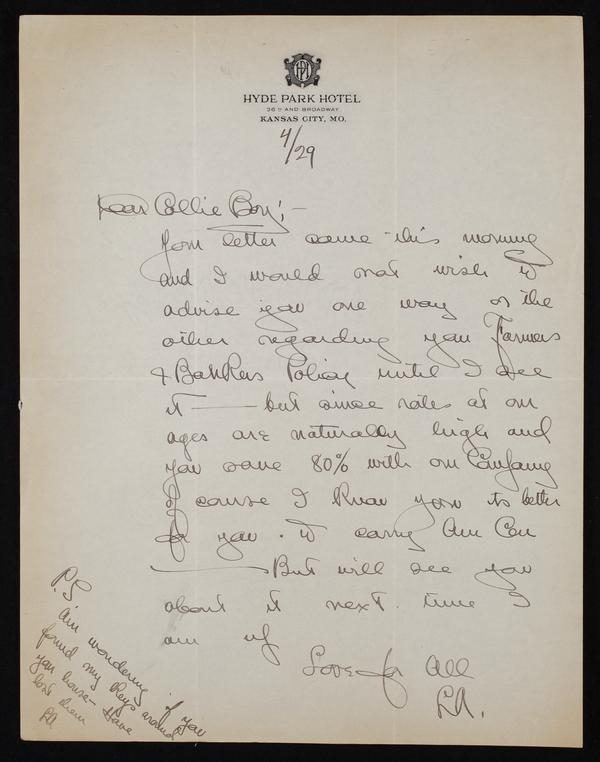 HPH
HYDE PARK HOTEL
36TH AND BROADWAY
KANSAS CITY, MO.
4/29
Dear Collie Boy;—
Your letter came this morning
and I would not wish to
advise you one way or the
other regarding your Farmers
& Bankers Policy until I see
it — but since rates at our
ages are naturally high and
you save 80% with our Company
of course I know its better
for you to carry Am Cen
— But will see you
about it next time I
am up
Love for All
LA.
P.S
Am wondering if you
found my Keys around
your house - Have
lost them
LA